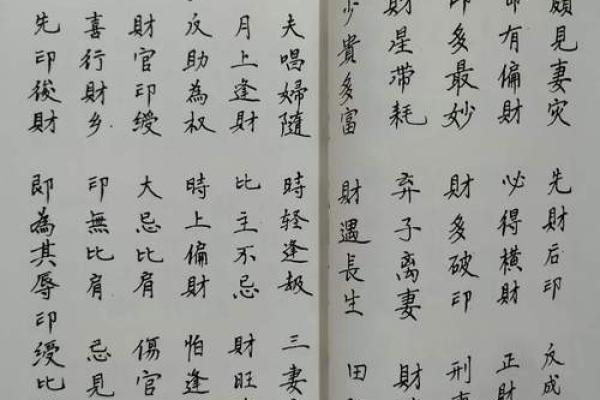 頗見妻灾 先財后印 反成
有偏財 必得橫財 正財
印多最妙 財多破印 刑
財星滞耗 弃子离妻 財
少貴多富 財遇長生 田
夫唱婦隨 時轻逢刼 三妻
月上逢財 比主不忌 財旺
反助為权 時上偏財 怕逢
財官印绶 大忌比肩 傷官
喜行財乡 印無比肩 忌見
先印後財 即為其辱 印绶比